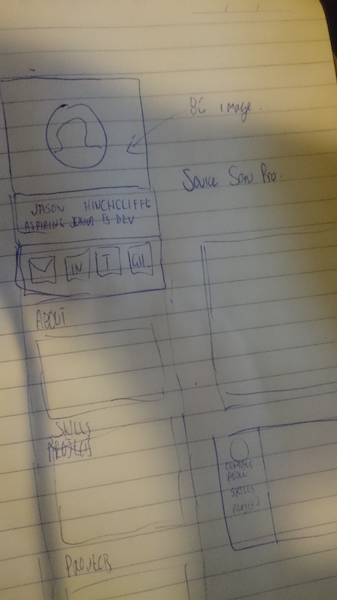 BG image.
Source Sans Pro.
JASON HINCHCLIFFE
ASPIRING JUNIOR FS DEV
IN
T
GH
ABOUT
SKILLS
PROJECTS
PROJECTS
CONTACT
ABOUT
SKILLS
PROJECTS